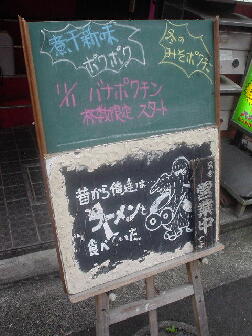 煮干新味
ポクポク
冬の
みそポクチン
11/1 バナポクチン
杯数限定 スタート
昔から俺達は
ラーメンを
食べていた。
営業中